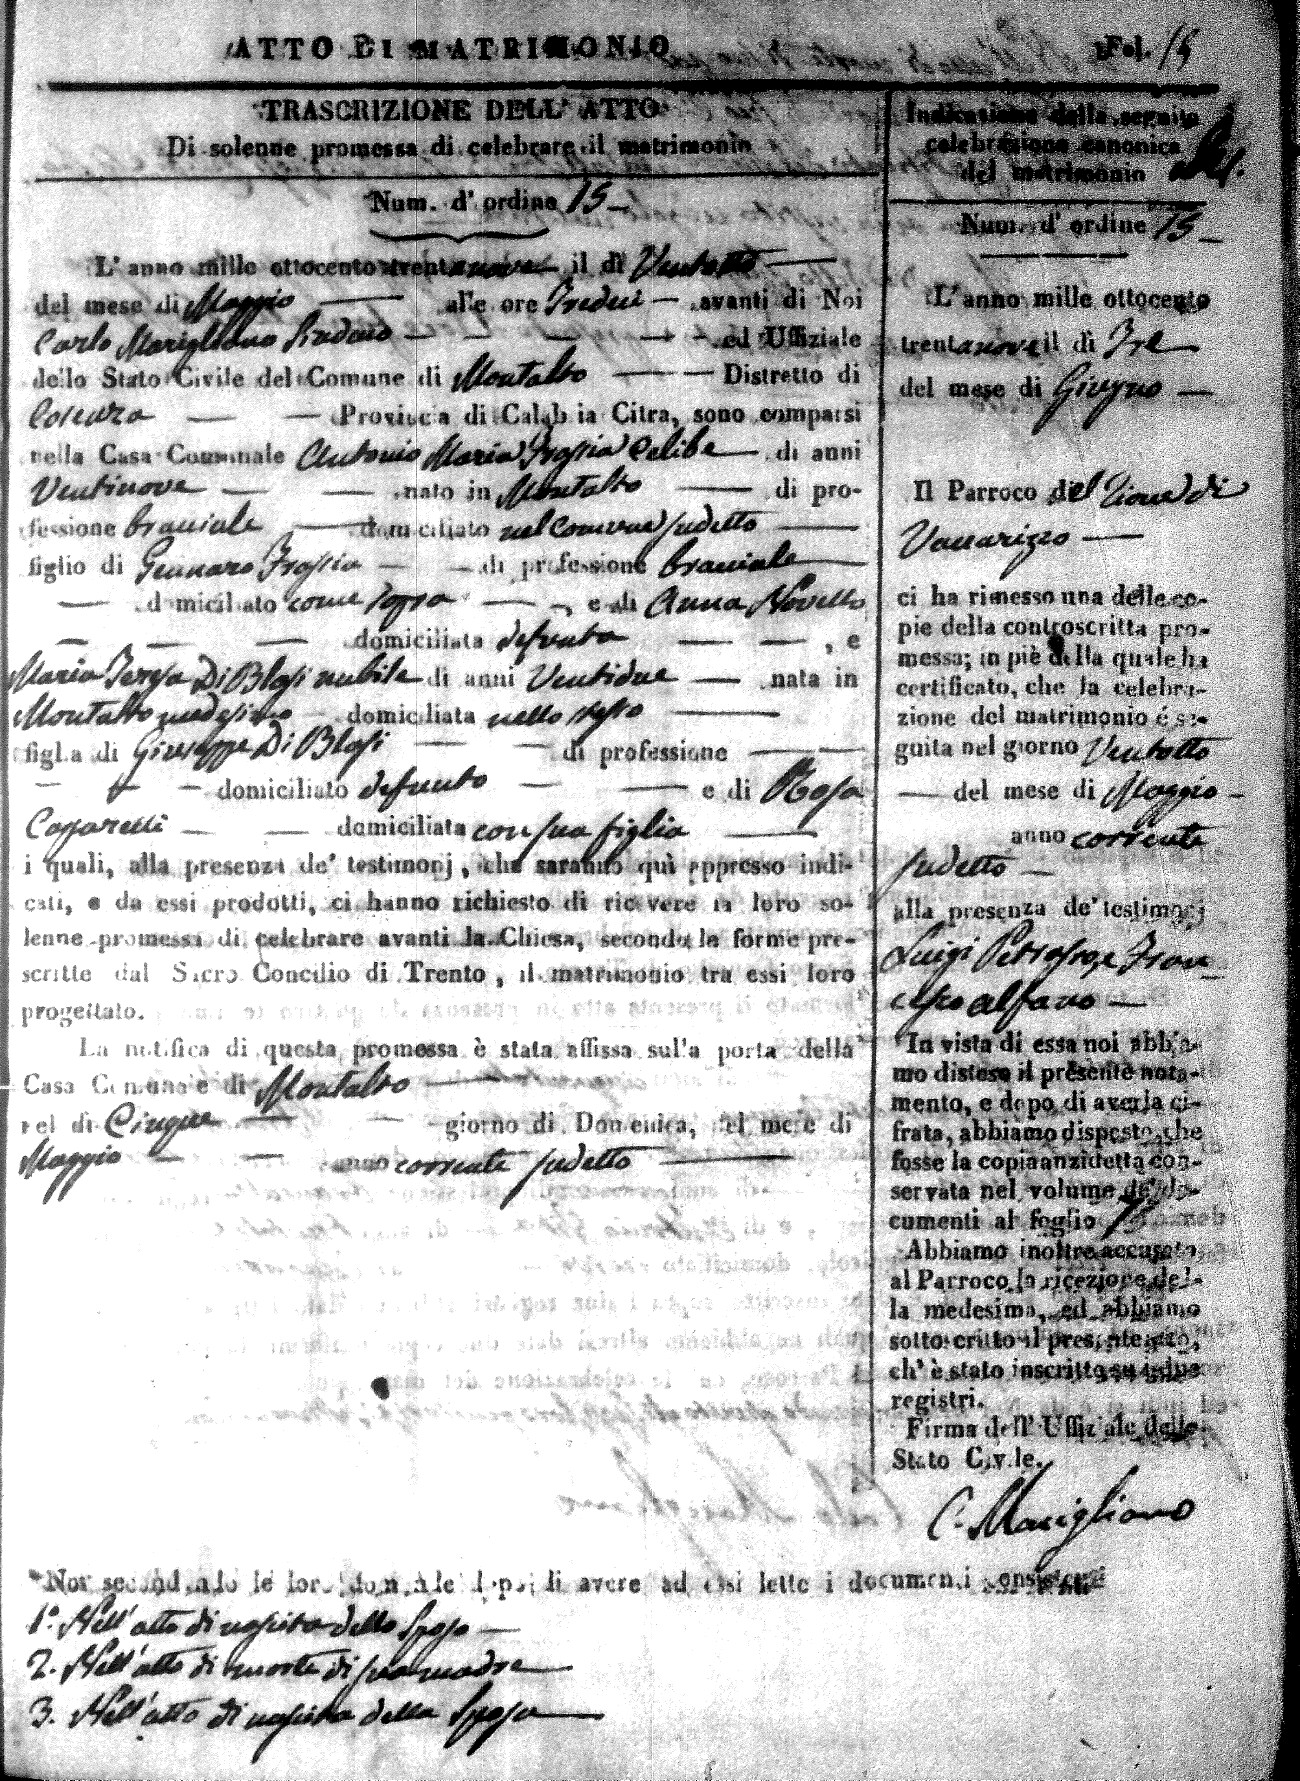 ATTO DI MATRIMONIO
Fol. 15
TRASCRIZIONE DELL' ATTO
Di solenne promessa di celebrare il matrimonio
Num. d' ordine 15
L' anno mille ottocento trentanove il dì Ventotto
del mese di Maggio alle ore Tredeci avanti di Noi
Carlo Marigliano Sindaco ed Uffiziale
dello Stato Civile del Comune di Montalto Distretto di
Cosenza Provincia di Calabria Citra, sono comparsi
nella Casa Comunale Antonio Maria Frassia Celibe di anni
Ventinove nato in Montalto di pro-
fessione bracciale domiciliato nel Comune sudetto
figlio di Gennaro Frassia di professione bracciale
domiciliato come sopra , e di Anna Novello
domiciliata defunta , e
Maria Teresa Di Blasi nubile di anni Ventidue nata in
Montalto medesimo domiciliata nello stesso
figlia di Giuseppe Di Blasi di professione
domiciliato defunto e di Rosa
domiciliata con sua figlia
i quali, alla presenza de' testimonj, che saranno quì appresso indi-
cati, e da essi prodotti, ci hanno richiesto di ricevere la loro so-
lenne promessa di celebrare avanti la Chiesa, secondo le forme pre-
scritte dal Sacro Concilio di Trento, il matrimonio tra essi loro
progettato.
La notifica di questa promessa è stata affissa sulla porta della
Casa Comunale di Montalto
nel dì Cinque giorno di Domenica, del mese di
Maggio anno corrente sudetto
Noi secondando le loro domande dopo di avere ad essi lette i documenti consistenti
1.° Nell' atto di nascita dello Sposo
2. Nell' atto di morte di sua madre
3. Nell' atto di nascita della Sposa
Indicazione della seguita
celebrazione canonica
del matrimonio
Num. d' ordine 15
L' anno mille ottocento
trentanove il dì Tre
del mese di Giugno
Il Parroco del di
Vaccarizzo
ci ha rimesso una delle co-
pie della controscritta pro-
messa; in piè della quale ha
certificato, che la celebra-
zione del matrimonio è se-
guita nel giorno Ventotto
del mese di Maggio
anno corrente
sudetto
alla presenza de' testimonj
Luigi e Fran
cesco Alfano
In vista di essa noi abbia-
mo disteso il presente nota-
mento, e dopo di averla ci-
frata, abbiamo disposto, che
fosse la copia anzidetta con-
servata nel volume de' do-
cumenti al foglio
Abbiamo inoltre accusato
al Parroco la ricezione del-
la medesima, ed abbiamo
sottoscritto il presente atto,
ch' è stato inscritto su i due
registri.
Firma dell' Uffiziale dello
Stato Civile.
C. Marigliano